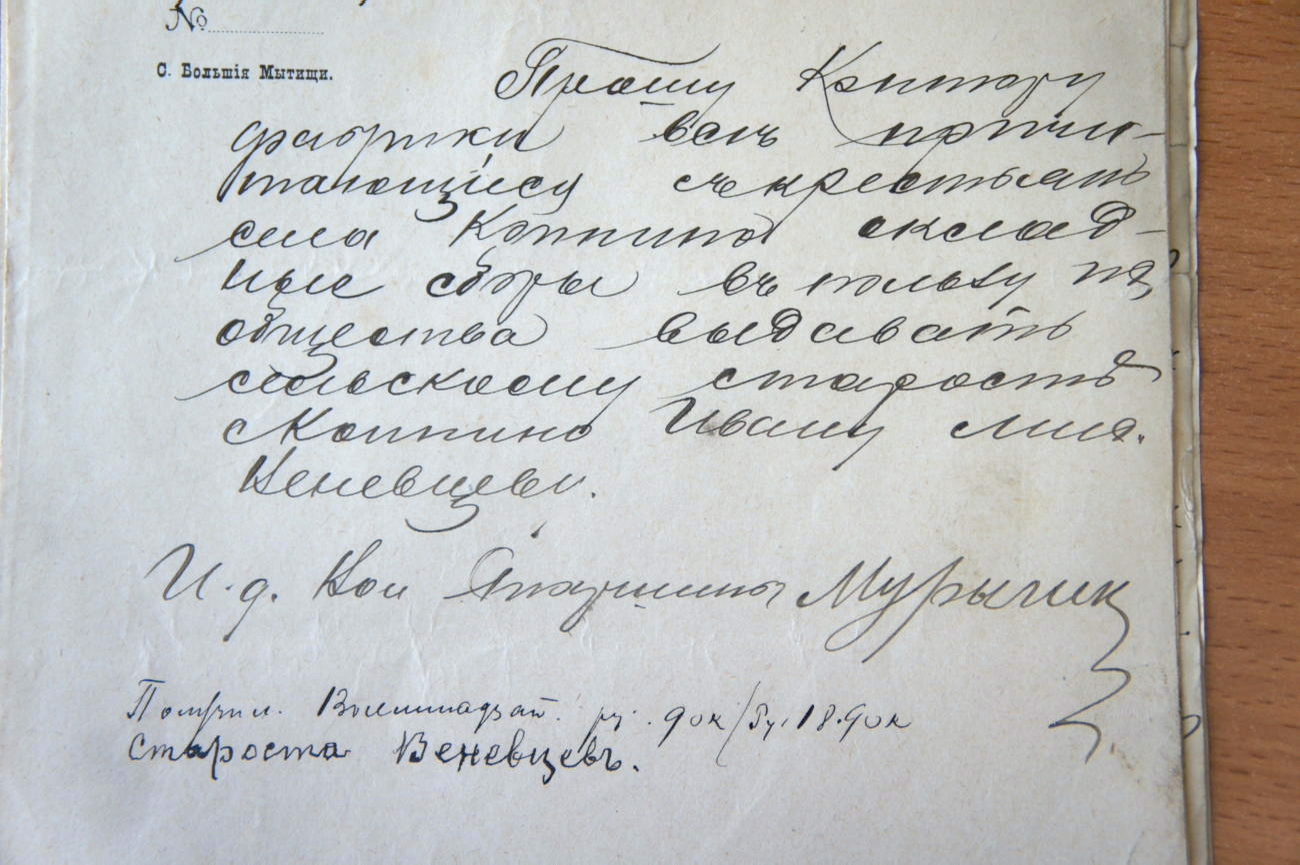 №
С. Большія Мытищи.
Прошу Контору
фабрики всѣ причи-
тающіеся съ крестьянъ
села Коптино оклад-
ные сборы въ пользу
общества выдавать
сельскому старостѣ
с Коптино Ивану
Веневцеву.
И. д. Вол Старшины Мурычик
Получил. Восемнадцат. ру. 90 к / Ру. 18. 90 к
Староста Веневцевъ.